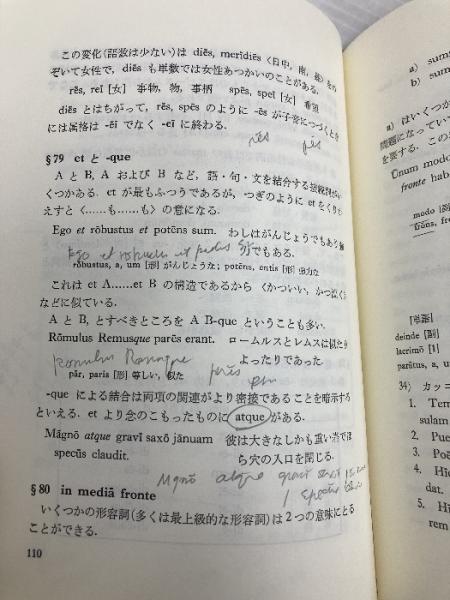 この変化(語数は少ない)は diēs, merīdiēs 〈日中, 南, 極〉をの
ぞいて女性で, diēs も単数では女性あつかいのことがある.
rēs, reī [女] 事物, 物, 事柄 spēs, speī [女] 希望
diēs とはちがって, rēs, spēs のように -ēs が子音につづくとき
には属格は -ēī でなく -eī に終わる.
rēs
§79 et と -que
A と B, A および B など, 語・句・文を結分する接続詞がい
くつかある. et が最もふつうであるが, つぎのように et をくりか
えすと〈……も……も〉の意になる.
Ego et rōbustus et potēns sum. わしはがんじょうでもあり強
力でもある.
Ego et robustus et
rōbustus, a, um [形] がんじょうな; potēns, entis [形] 強力な
これは et A……et B の構造であるから〈かつ……い, かつ……
などに似ている.
A と B, とすべきところを A B-que ということも多い.
Rōmulus Remusque parēs erant. ロームルスとレムスは似た
よったりであった
Romulus
pār, paris [形] 等しい, 似た
parēs
-que による結合は両項の関連がより密接であることを暗示する
といえる. et より念のこもったものに atque がある.
Māgnō atque gravī saxō jānuam 彼は大きなしかも重い岩でほ
specūs claudit. ら穴の入口を閉じる.
Magnō atque gravi
§80 in mediā fronte
いくつかの形容詞(多くは最上級的な形容詞)は2つの意味にとる
ことができる.
110
a) sum
b) sum
a) はいくつか
問題になってい
を要する. この
Ūnum modo
fronte hab
modo [副]
frōns, fr
[単語]
deinde [副]
lacrimō [1]
parātus, a, um
34) カッコ
1. Tem
sulam
2. Pue
3. Po
4. Hi
dat.
5. Hi
rem